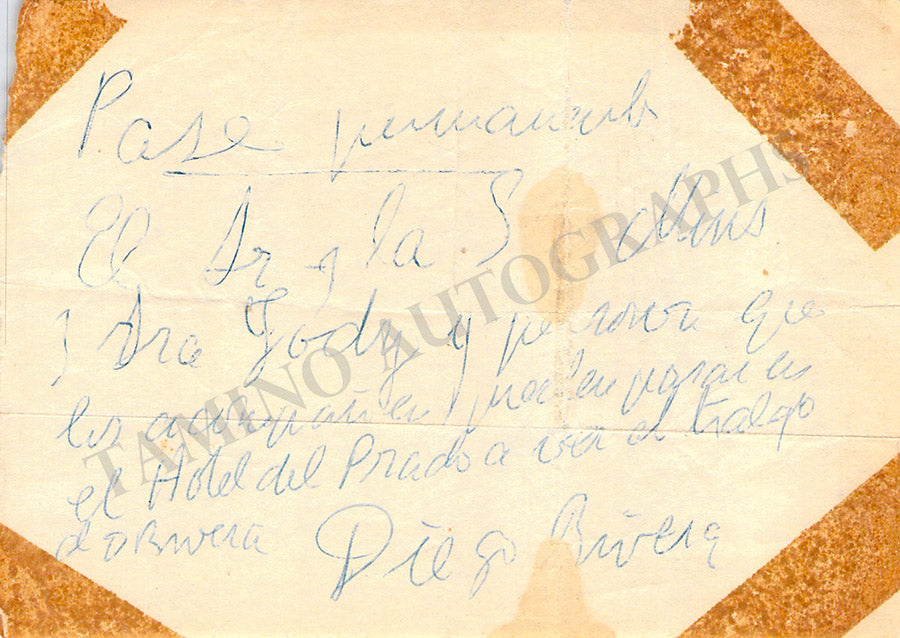 Pase permanente
El Sr y la S
y Sra Jody y persona que
los acompañen pueden pasar en
el Hotel del Prado a ver el trabajo
d D Rivera
Diego Rivera
TAMINO AUTOGRAPHS